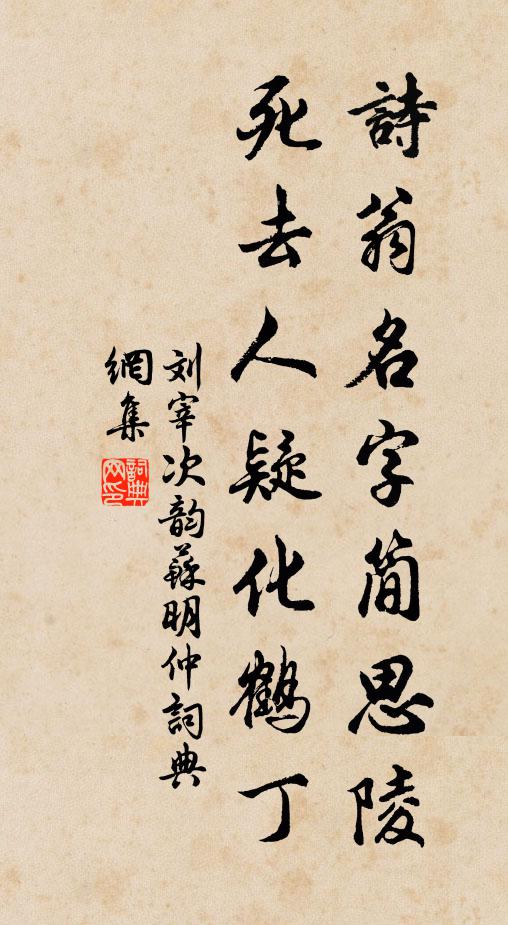 詩翁名字簡思陵
死去人疑化鶴丁
刘宰次韵蘇明仲詞典
網集
詞典
网印